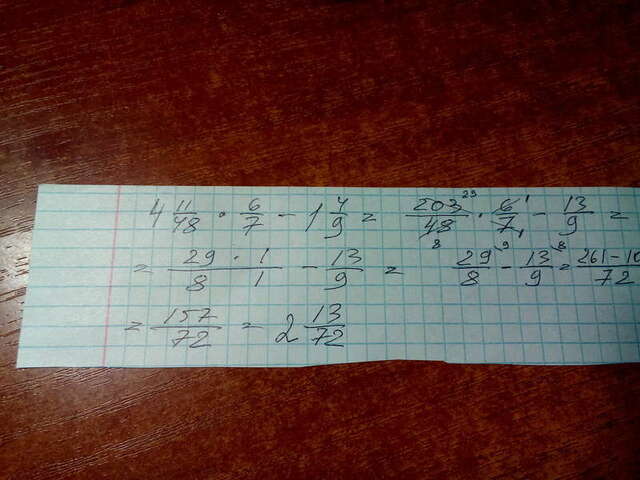 4 11/48 · 6/7 - 1 4/9 = 203/48 · 6/7 - 13/9 =
= 29 · 1/8 1 - 13/9 = 29/8 - 13/9 = 261 - 10/72
= 157/72 = 2 13/72